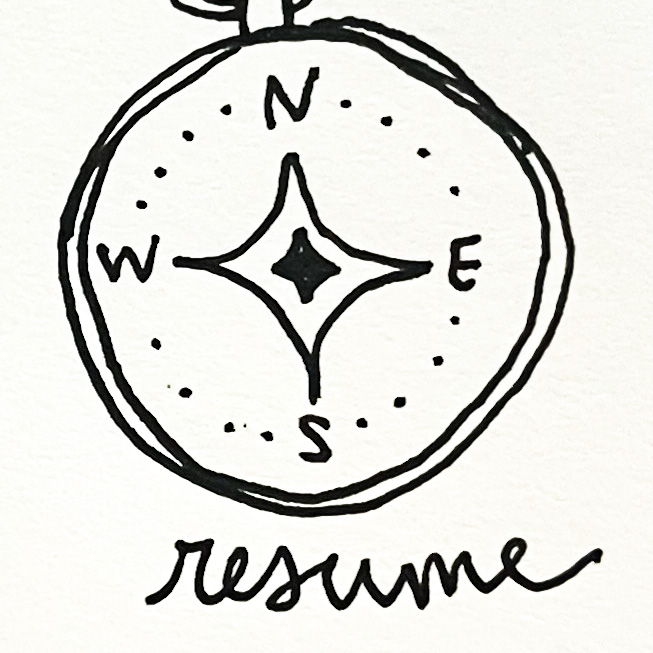 N
W E
S
resume